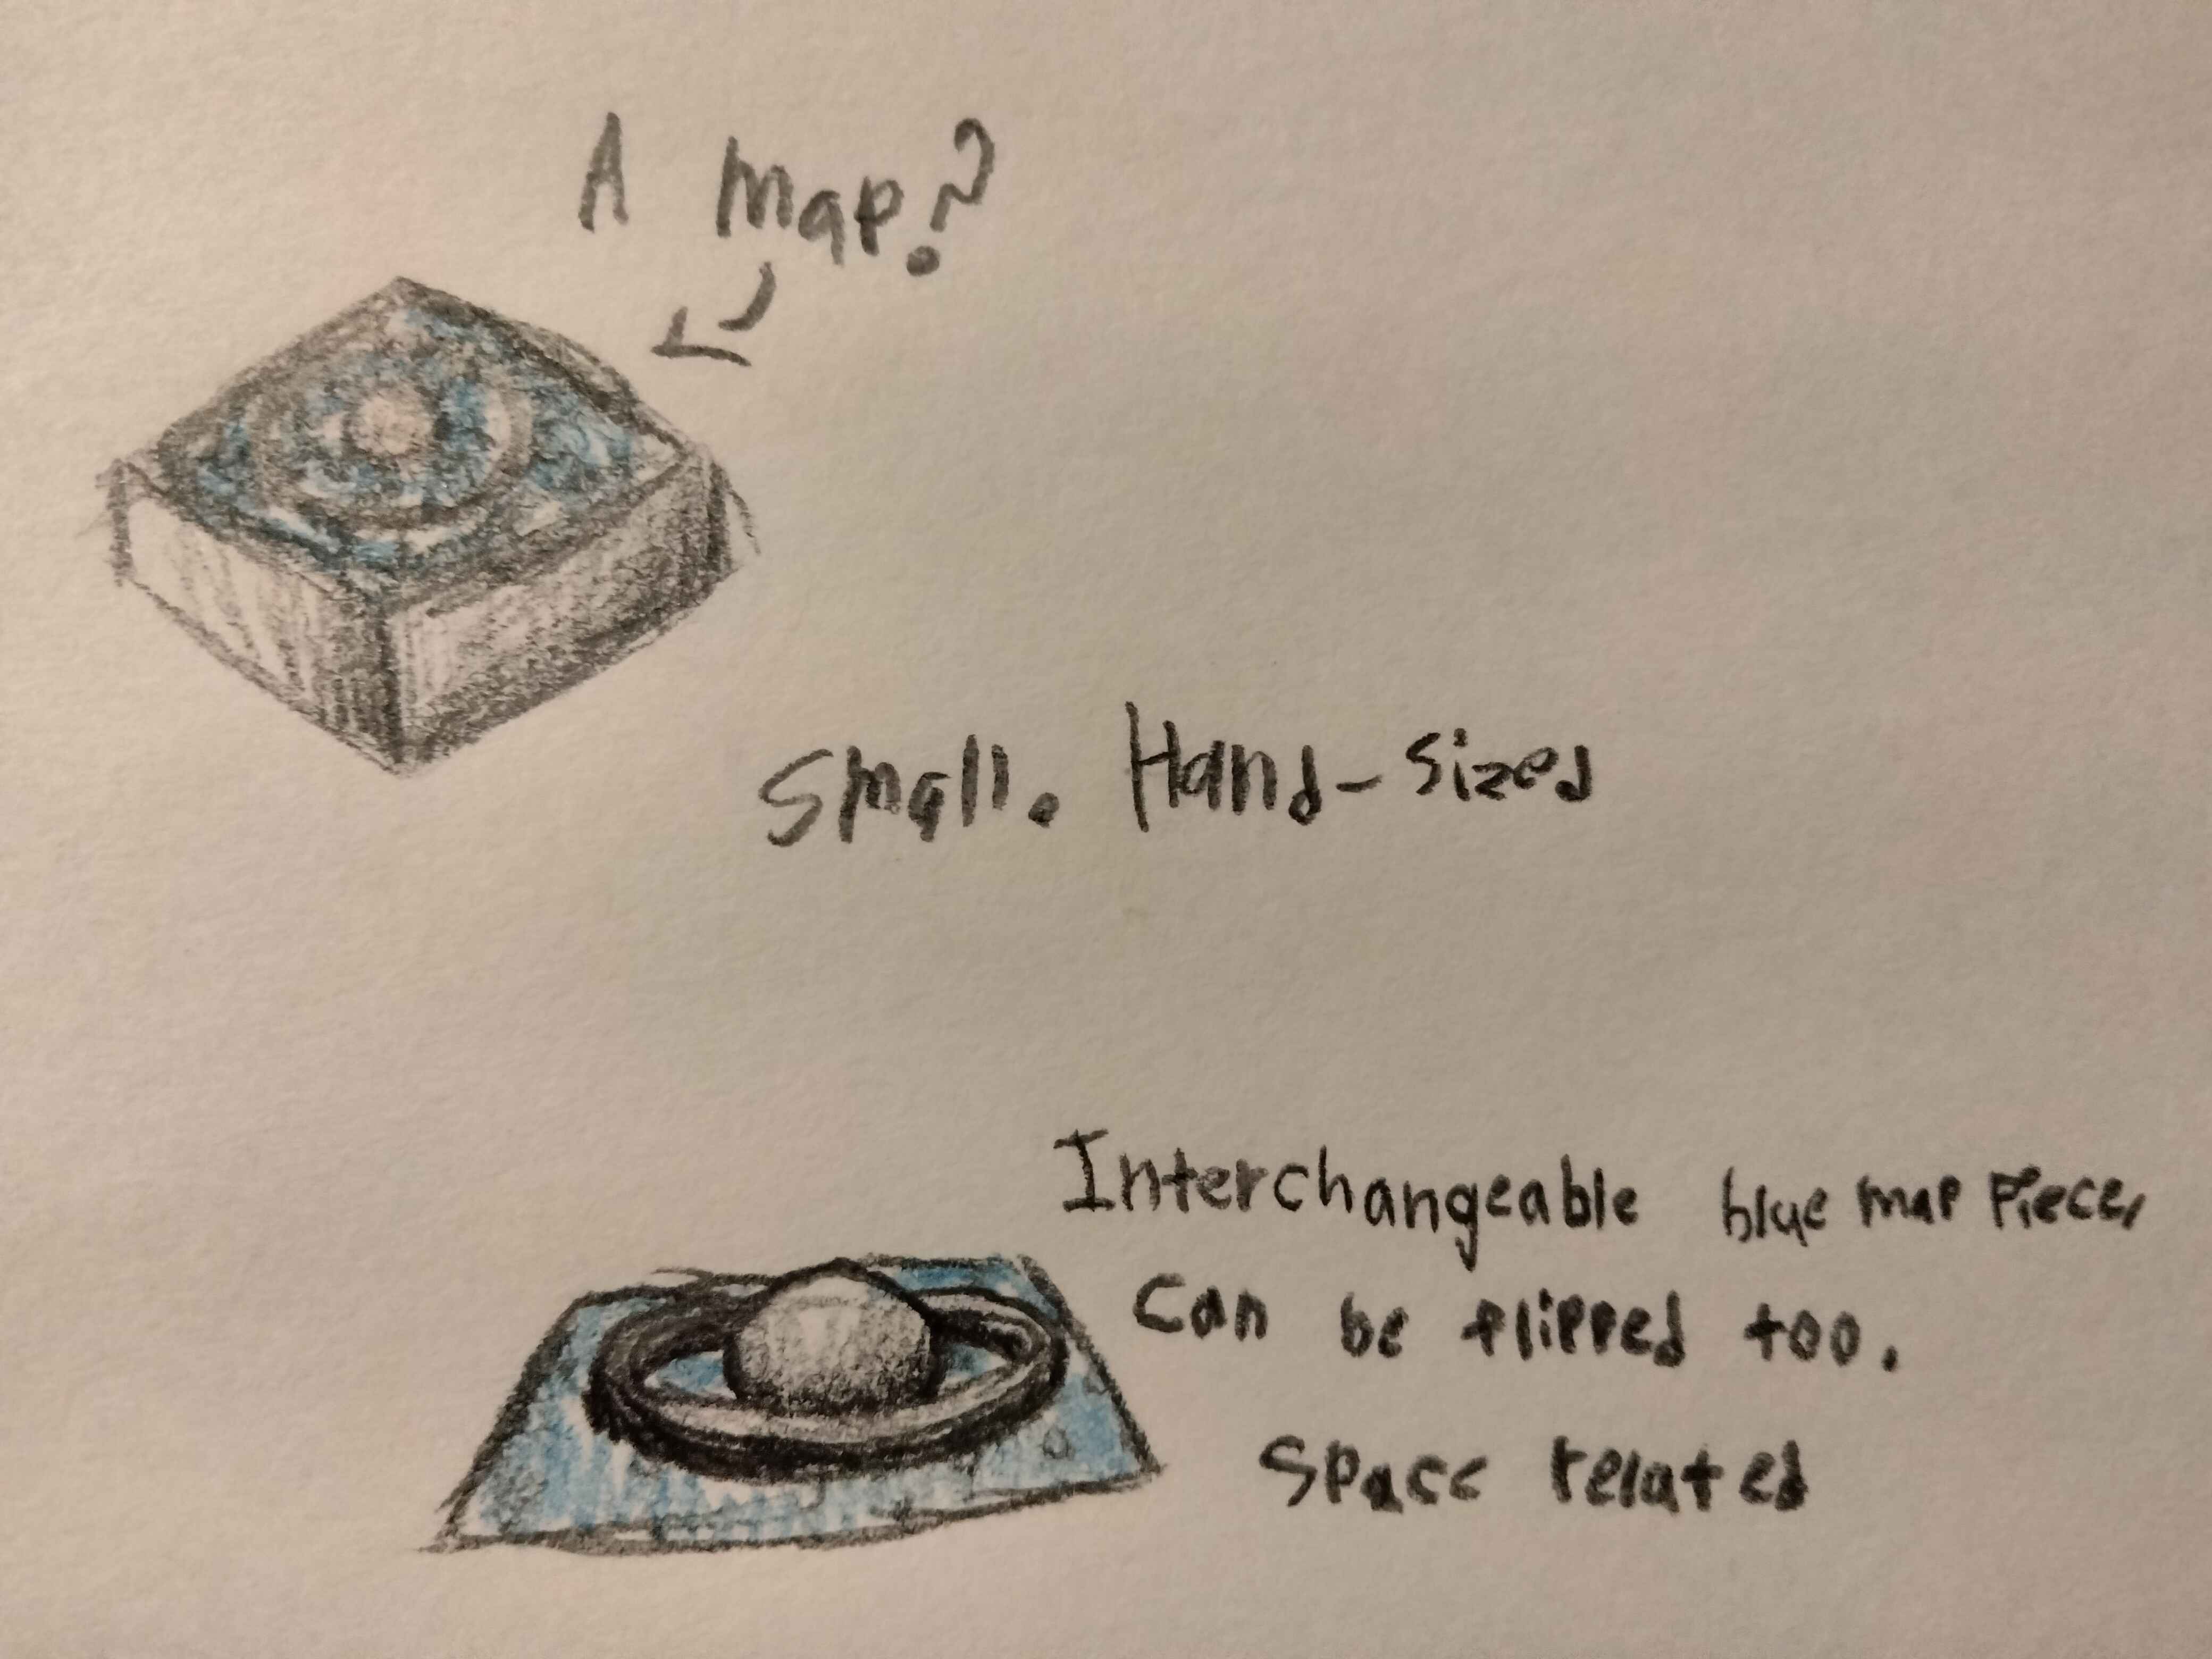 A Map?
Small. Hand-sized
Interchangeable blue map piece,
can be flipped too.
Space related